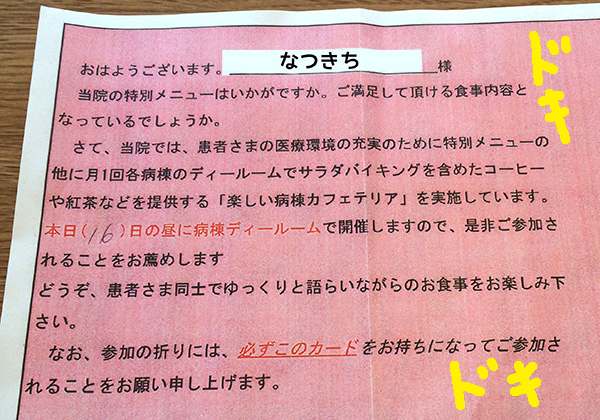 おはようございます。 なつきち 様
当院の特別メニューはいかがですか。ご満足して頂ける食事内容と
なっているでしょうか。
さて、当院では、患者さまの医療環境の充実のために特別メニューの
他に月1回各病棟のディールームでサラダバイキングを含めたコーヒー
や紅茶などを提供する「楽しい病棟カフェテリア」を実施しています。
本日(16)日の昼に病棟ディールームで開催しますので、是非ご参加さ
れることをお薦めします
どうぞ、患者さま同士でゆっくりと語らいながらのお食事をお楽しみ下
さい。
なお、参加の折りには、必ずこのカードをお持ちになってご参加さ
れることをお願い申し上げます。
ドキ
ドキ